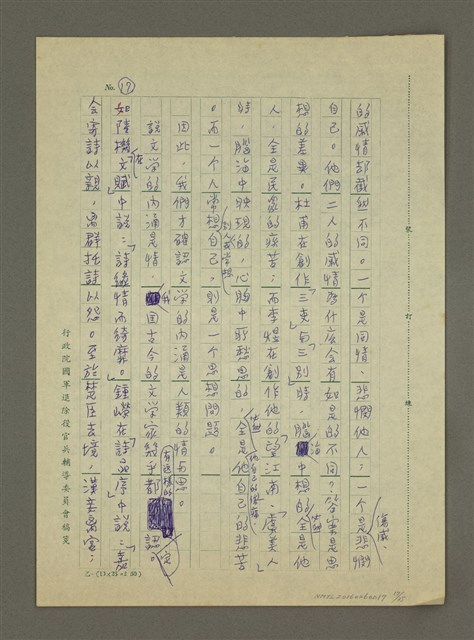 No. 17
的感情却截然不同。一個是同情、悲憫他人;一個是傷感、悲憫
自己。他們二人的感情為什麼會有如是的不同?答案是思
想的差異。杜甫在創作「三吏」與「三別」時,腦海中想的全是他
人,全是民眾的疾苦;而李煜在創作他的「望江南」、「虞美人」
時,腦海中映現的,心胸中所愁思的,全是他自己的悲苦
。而一個人常想別人或常想自己,則是一個思想問題。
因此,我們才確認文學的內涵是人類的情與思。
說文學的內涵是情,我國古今的文學家幾乎都認定。
如陸機在「文賦」中說:「詩緣情而綺靡。」鍾嶸在「詩品序」中說:「嘉
會寄詩以親,離群托詩以怨。至於楚臣去境,漢妾辭宮;
裝 訂 線
行政院國軍退除役官兵輔導委員會稿箋